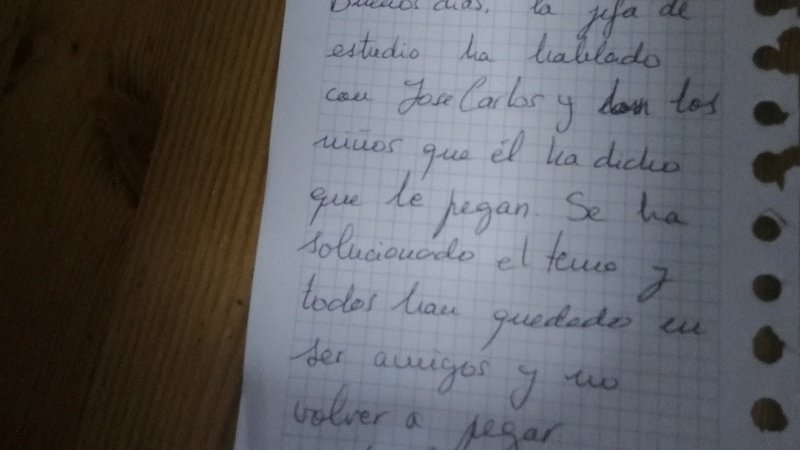 Buenos días, la jefa de
estudio ha hablado
con Jose Carlos y con los
niños que él ha dicho
que le pegan. Se ha
solucionado el tema y
todos han quedado en
ser amigos y no
volver a pegar